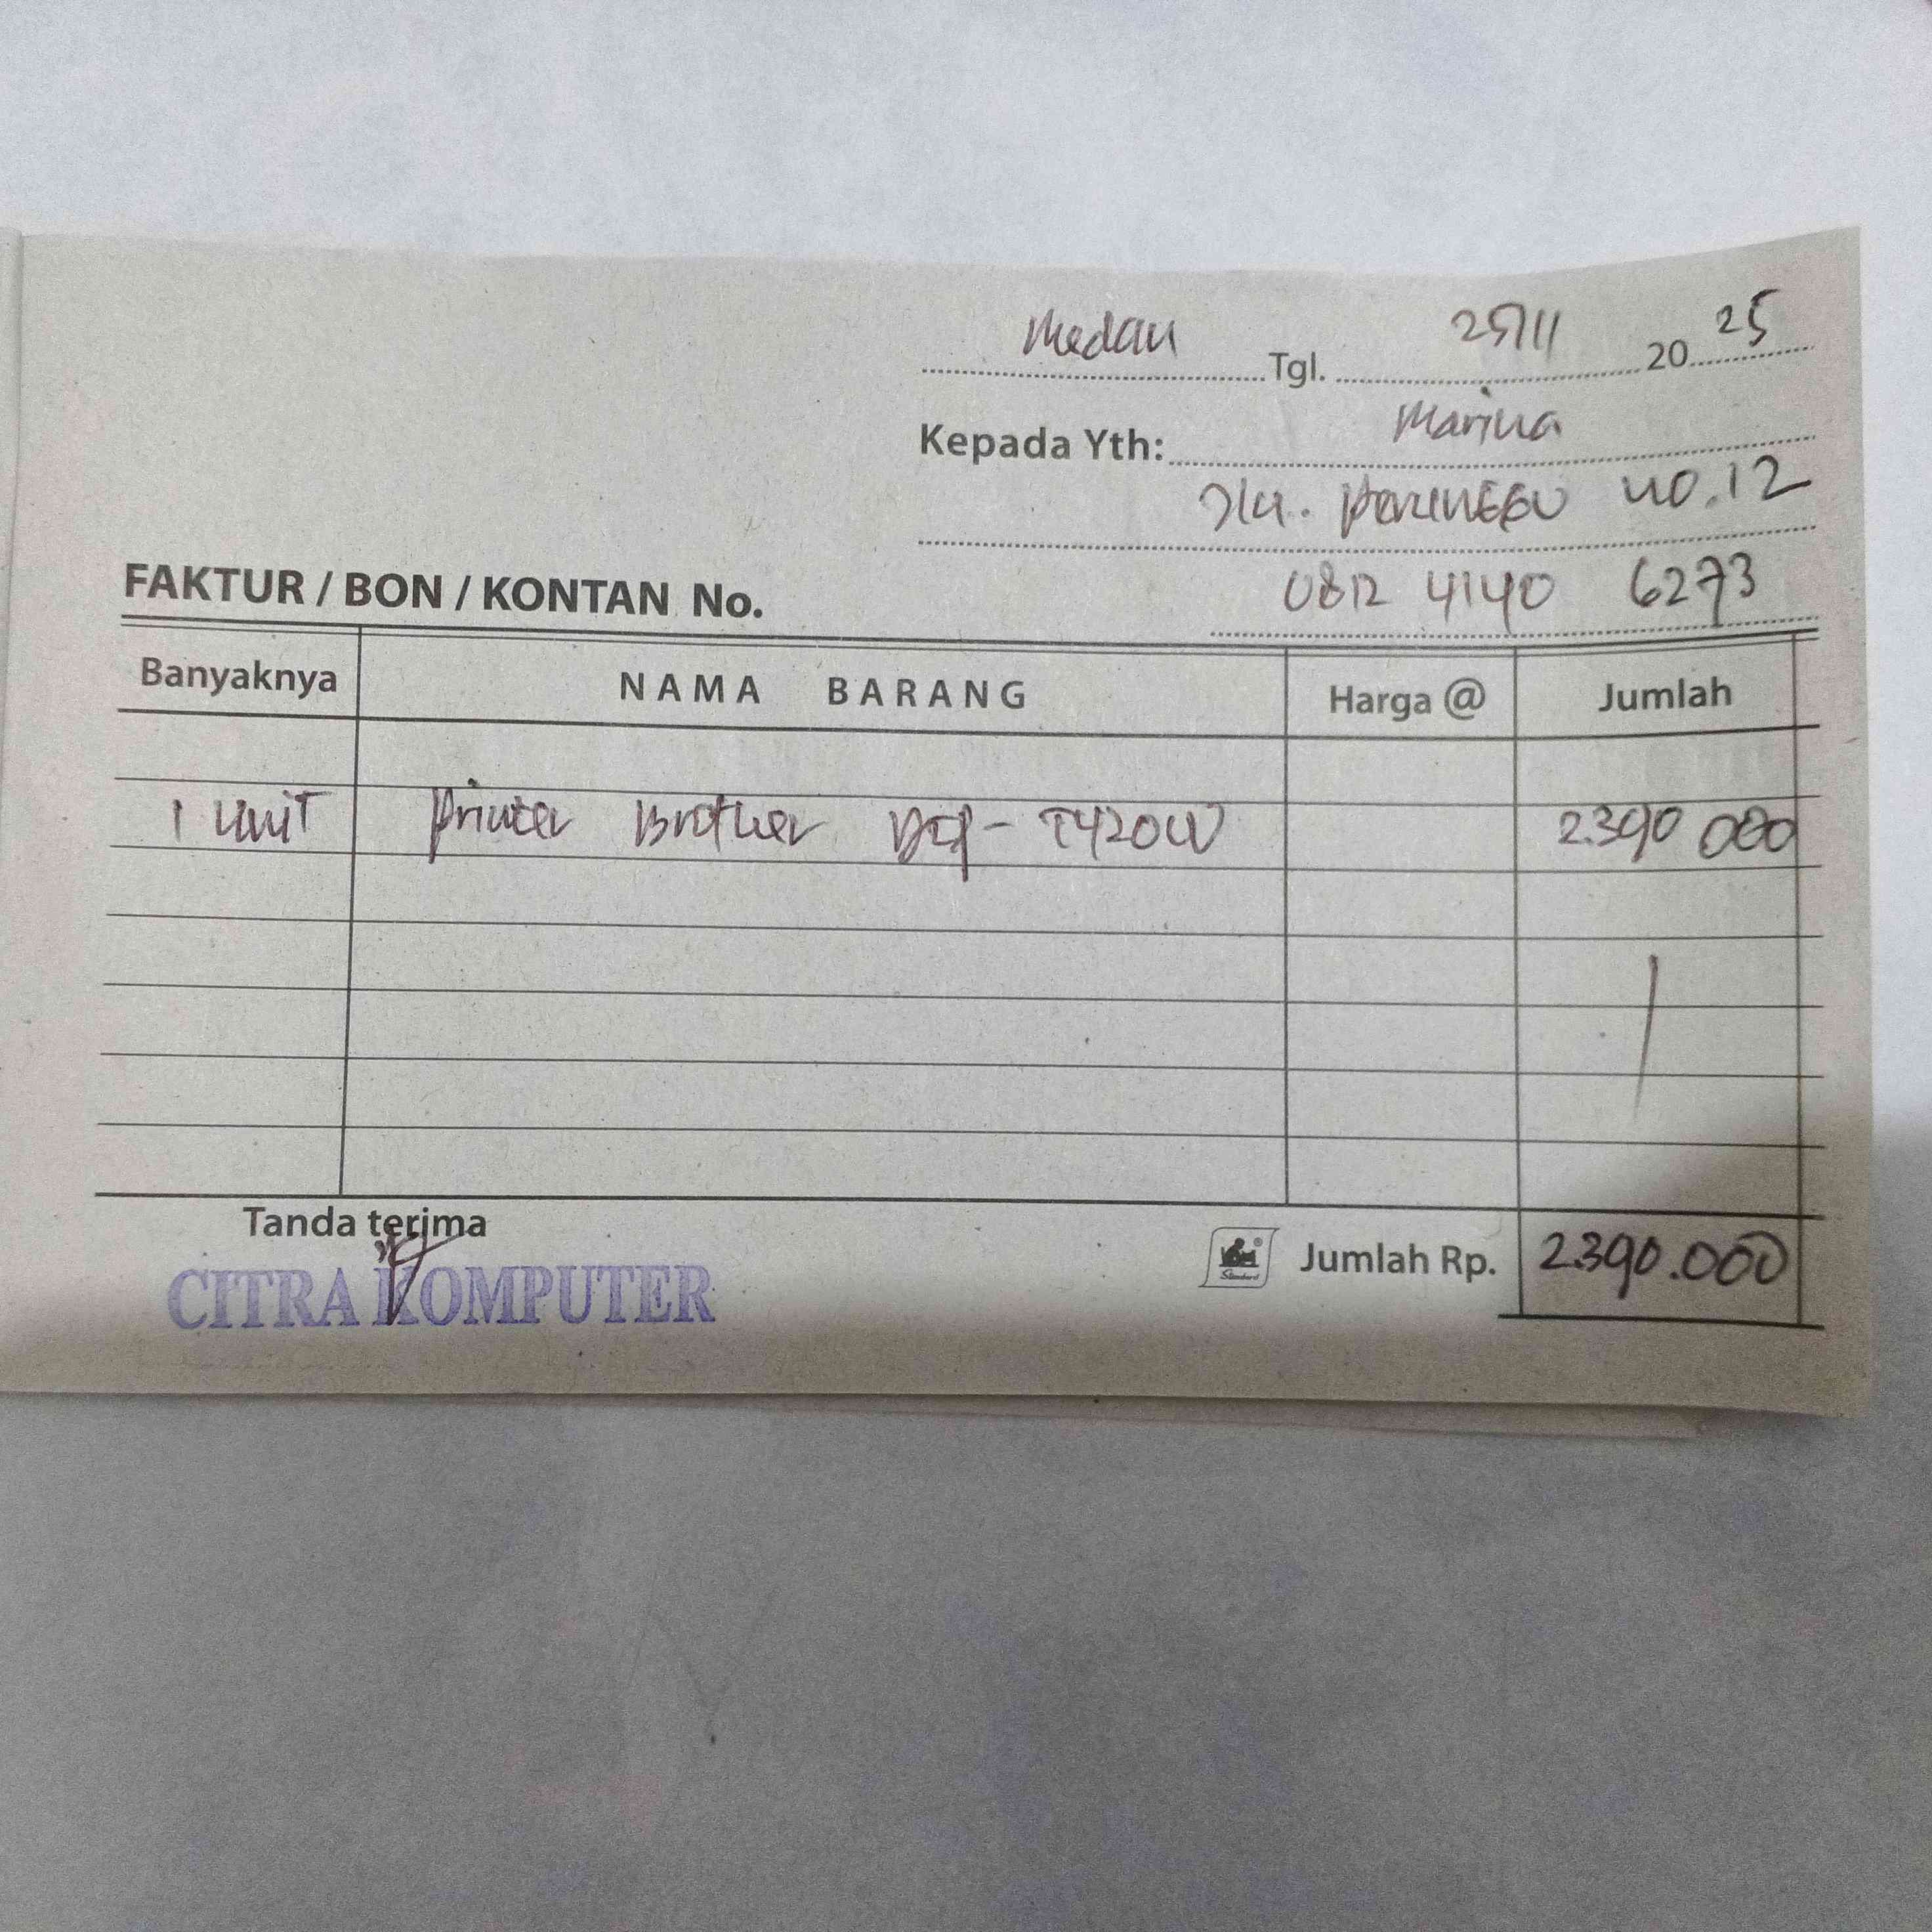 Medan Tgl. 25/11 2025
Kepada Yth: Marina
Jln. Perunggu no.12
0812 4140 6273
FAKTUR / BON / KONTAN No.
Banyaknya NAMA BARANG Harga @ Jumlah
1 Unit Printer Brother DCP-T420W 2.390 000
Tanda terima
CITRA KOMPUTER
Standard Jumlah Rp. 2.390.000